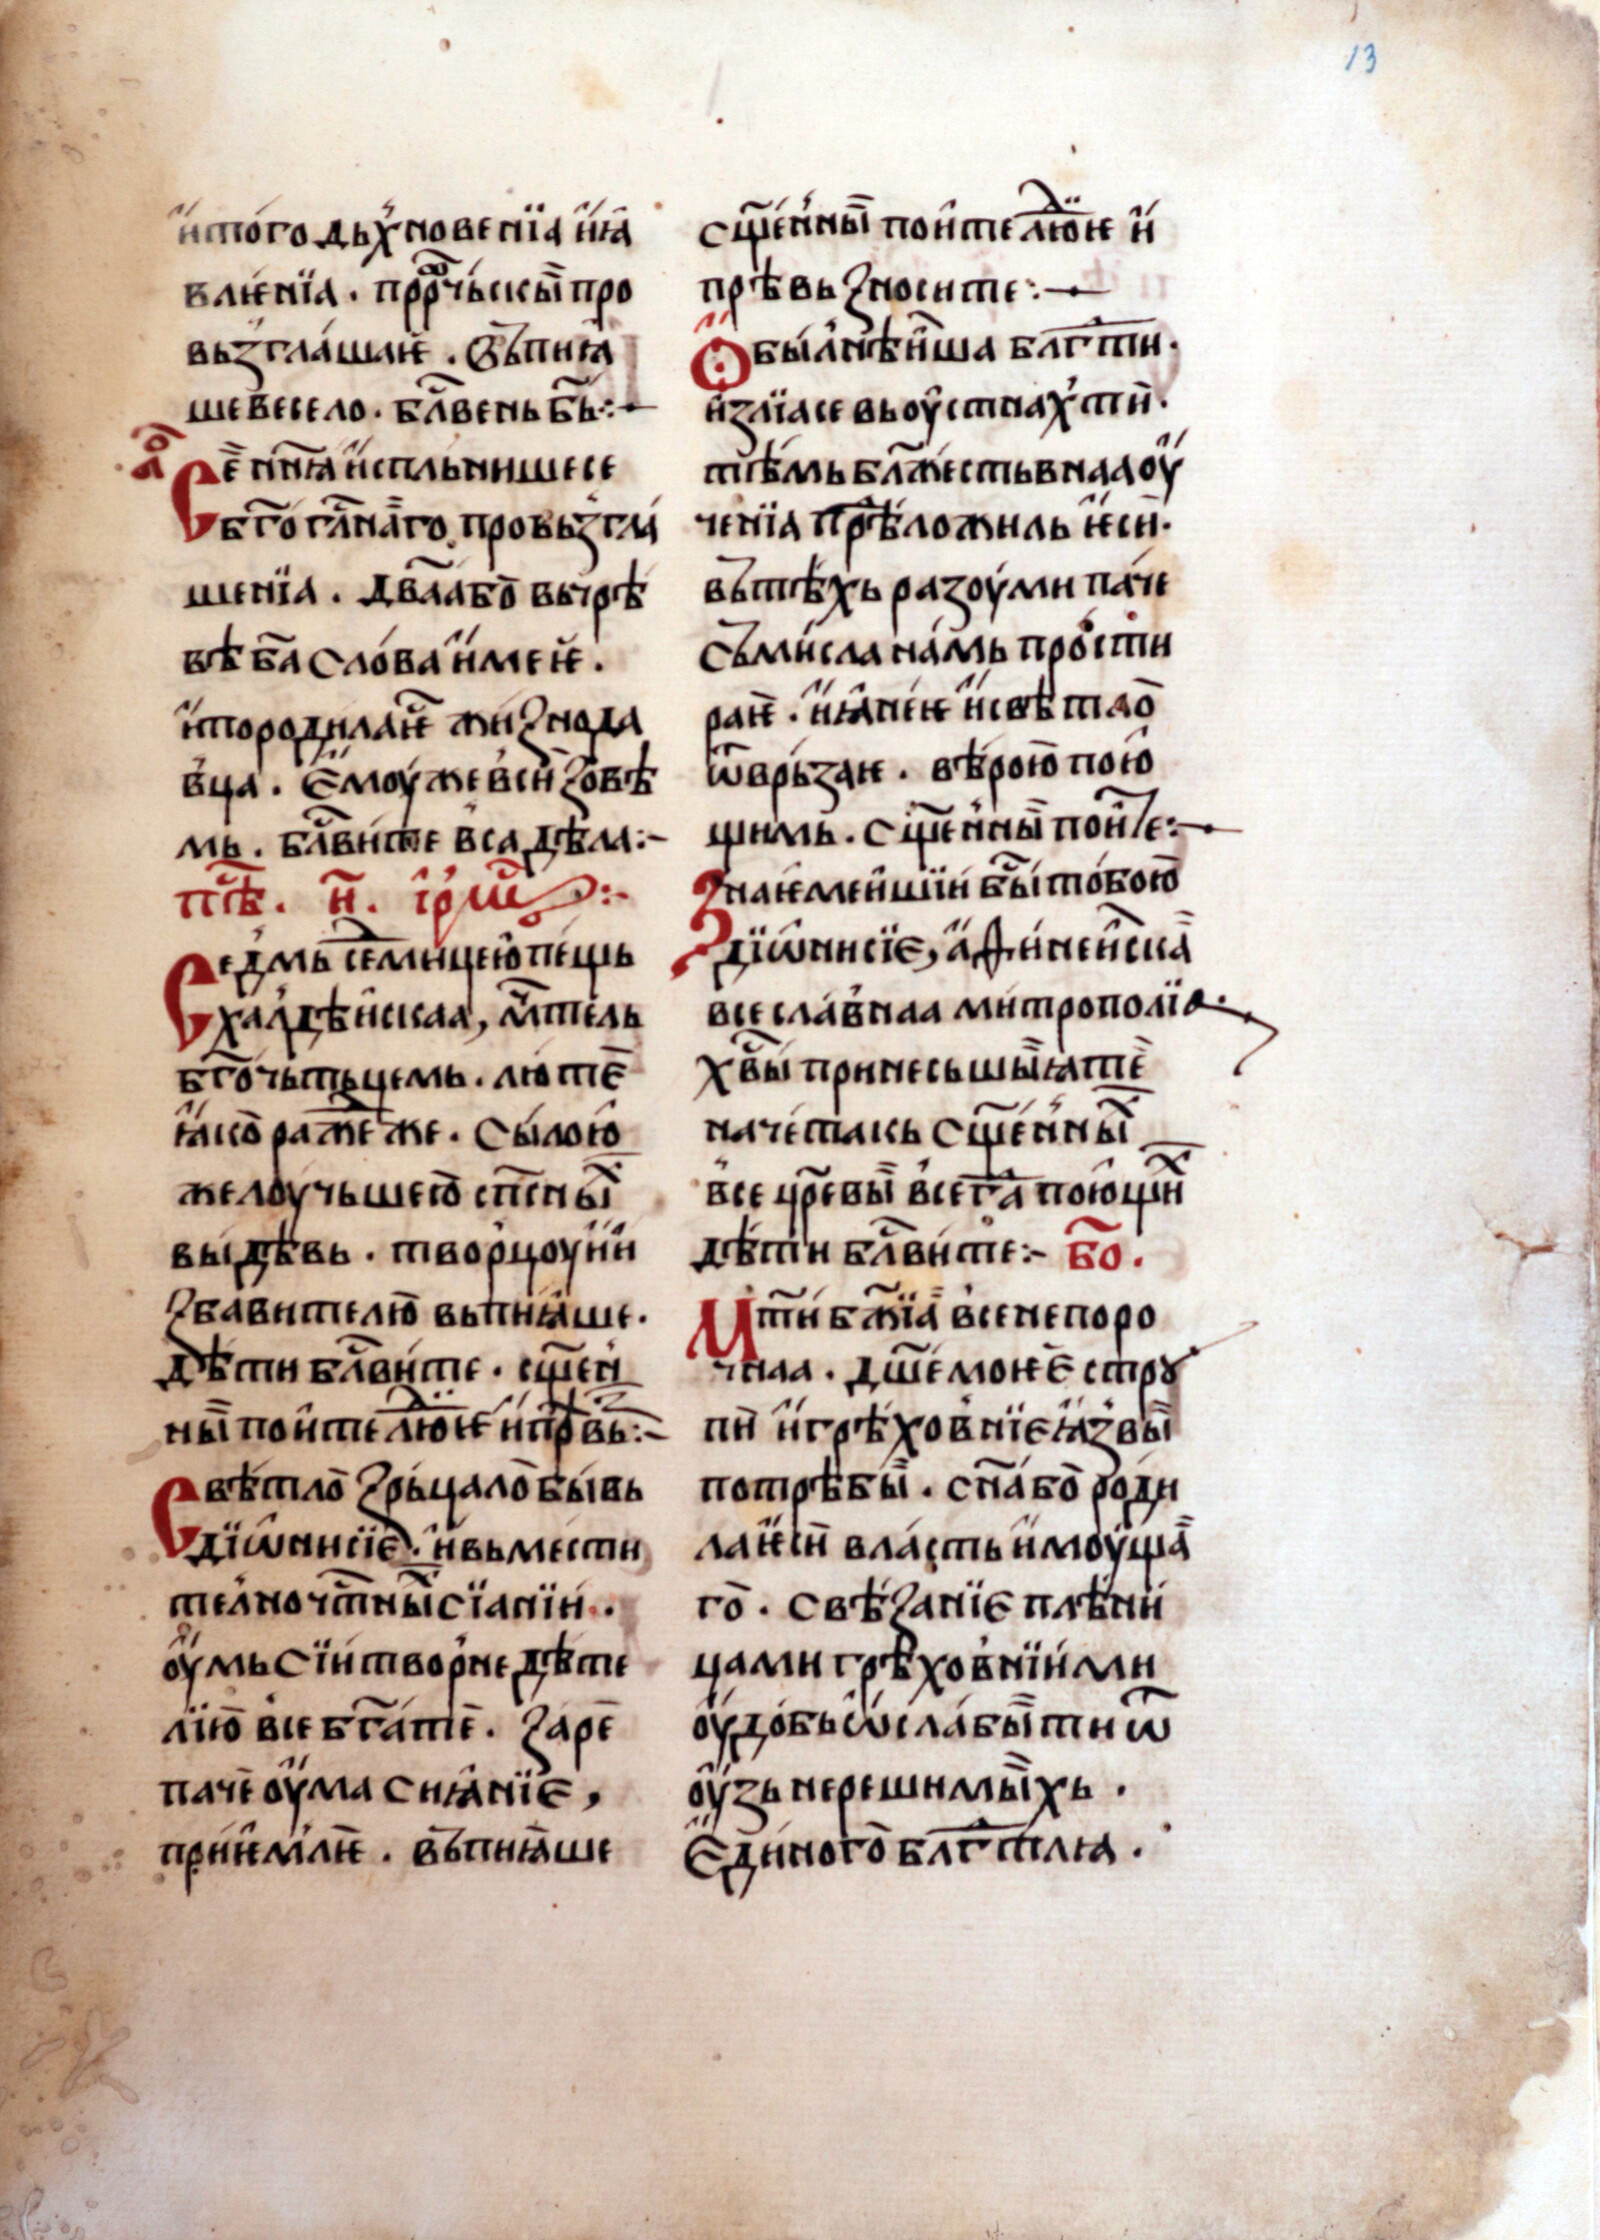 13
и҆того дъх҆новенїа и҆ꙗ҆
влѥнїа. прⷪ҇рчьскыи҆ про
вьзглашаѥ. Въпиꙗ
шевесело. блⷭ҇вень бь҃:
Се ннꙗ҃ и҆спльнишесе
бг҃огл҃наⷢ҇го провьзгла
шенїа. дв҃аабо вьчрѣ
вѣ ба҃ слова и҆меѥ.
и҆породилаѥ жизнода
в҆ца. Е҆моуже в҆си зовѣ
мь. блⷭ҇вите вса дѣла:
пѣ҃. и҃. їрмⷭ҇:
Седмь семицею пещь
халдѣискаа, мч҃тель
бг҃очьтьцемь. люте
ꙗ҆ко ражеже. Сылою
желоучьшею сп҃сныⷯ
выдѣвь. творцоу и҆и҆
збавителю вьпиꙗше.
дѣти блⷭ҇вите. сщ҃ен҆
ныи҆ поите люⷣїе и҆прѣвь:
Свѣтло зрьцало бывь
дїѡ҆нисїе. и҆вьмести
телно чтⷭ҇ныⷨ сїанїи.
оу҆мь сїи творне дѣте
лїю все бг҃ате. заре
паче оу҆ма сиꙗнїе,
прїиѥмлѥ. въпиꙗше
сщ҃ен҆ныи҆ поите люⷣїе и҆
прѣвьзносите:
О҆былнѣиша блгⷣти.
изліасе вьоу҆стнах҆ ти.
тѣмь блажⷭ҇естьвнаа оу҆
ченїа прѣложиль ѥси.
вьтѣхь разоуми паче
съмисла намь прости
раѥ. и҆ꙗснѥ и҆свѣтло
ѿврьзаѥ. вѣрою пою
щимь. сщ҃ен҆ныи҆ поиⷮе:
Знаѥмеишїи бⷭ҇ы тобою
дїѡ҆нисїе, а҆ѳинеискаꙗ
всеславнаа митрополїа.
хв҃ы принесьшыи ꙗте
начетакь сщ҃ен҆ныⷯ
все цр҃евыи всегⷣа поющиⷯ
дѣти блⷭ҇вите: бо҃.
Мт҃и бж҃їа всенепоро
чнаа. дш҃емоѥ Е҆ стру
пи и҆грѣхов҆нїе ꙗ҆звы
потрѣбы. сн҃або роди
лаѥси власть и҆моуща
го. свѣзанїе плѣни
цами грѣхов҆нїими
оу҆добь ѡ҆слабыти ѿ
оу҆зь нерешимыихь.
Е҆диного блгⷣтлꙗ.